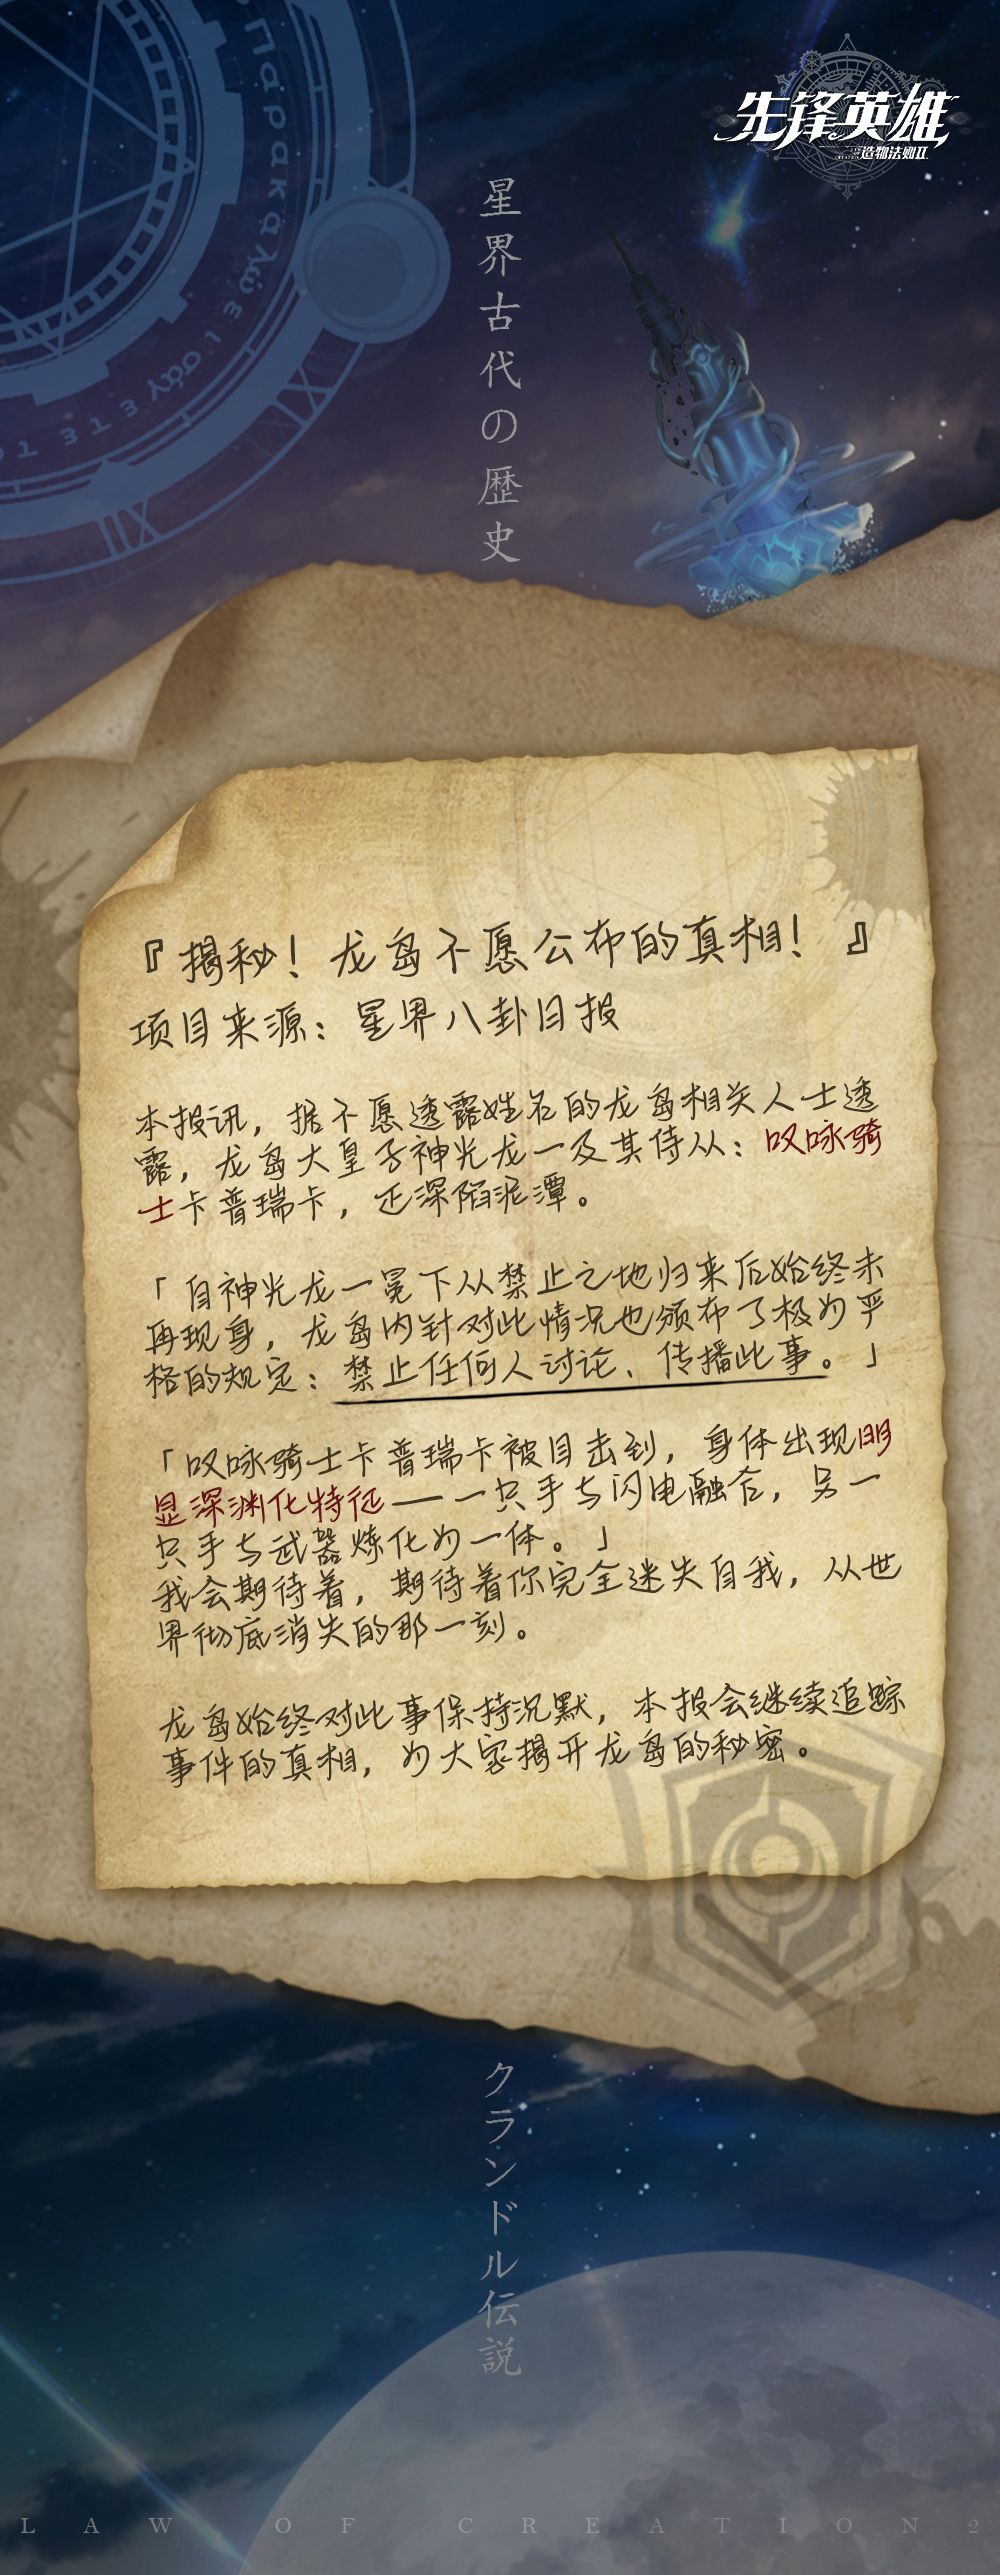 先锋英雄
造物法则II
星界古代の歴史
『揭秘！龙岛不愿公布的真相！』
项目来源：星界八卦日报
本报讯，据不愿透露姓名的龙岛相关人士透
露，龙岛大皇子神光龙一及其侍从：叹咏骑
士卡普瑞卡，正深陷泥潭。
「自神光龙一冕下从禁止之地归来后始终未
再现身，龙岛内针对此情况也颁布了极为严
格的规定：禁止任何人讨论、传播此事。」
「叹咏骑士卡普瑞卡被目击到，身体出现明
显深渊化特征——一只手与闪电融合，另一
只手与武器炼化为一体。」
我会期待着，期待着你完全迷失自我，从世
界彻底消失的那一刻。
龙岛始终对此事保持沉默，本报会继续追踪
事件的真相，为大家揭开龙岛的秘密。
クランドル伝説
LAW OF CREATION2